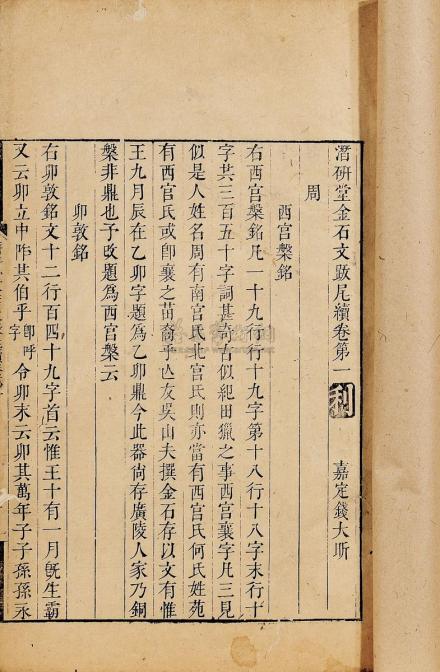 潛硏堂金石文跋尾續卷第一 利 嘉定錢大昕
周
西宫槃銘
右西宫槃銘凡一十九行行十九字第十八行十八字末行十
字共三百五十字詞甚奇古似紀田獵之事西宫襄字凡三見
似是人姓名周有南宫氏北宫氏則亦當有西宫氏何氏姓苑
有西宫氏或卽襄之苗裔乎亡友吳山夫撰金石存以文有惟
王九月辰在乙卯字題爲乙卯鼎今此器尙存廣陵人家乃銅
槃非鼎也予改題爲西宫槃云
卯敦銘
右卯敦銘文十二行百四十九字首云惟王十有一月旣生霸
又云卯立中阼其伯乎卽呼字令卯末云卯其萬年子子孫孫永